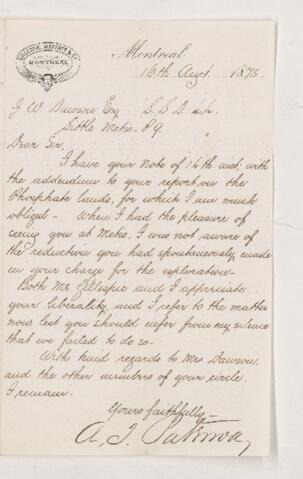 GILLESPIE, MOFFATT & CO.
MONTREAL
Montreal
16th Augt. 1878
J W Dawson Esq
Little Metis P.Q.
Dear Sir,
I have your note of 14th inst; with
the addendum to your report, on the
Phosphate lands, for which I am much
obliged - When I had the pleasure of
seeing you at Metis, I was not aware of
the reduction you had spontaneously made
in your charge for the exploration -
Both Mr Gillespie and I appreciate
your liberality, and I refer to the matter
now lest you should infer from my silence
that we failed to do so -
With kind regards to Mrs Dawson,
and the other members of your circle
I remain
Yours faithfully
A. T. Paterson